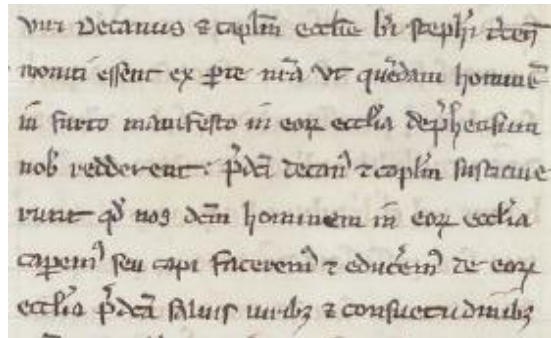 viri Decanus ⁊ capłm ecclie bi stephi trecen̄
moniti essent ex ꝑte nr̄a vt quēdam hominē
in furto manifesto in eoꝝ eccłia depͥhensum
nob̾ redderent: pͥdc̄i decanꝰ ⁊ capłm sustinue
runt qd̾ nos dc̄m hominem in eoꝝ eccłia
caperemꝰ seu capi faceremꝰ ⁊ educ̾emꝰ de eoꝝ
eccłia pͥdc̄a saluis iuribꝫ ⁊ consuetudinibꝫ